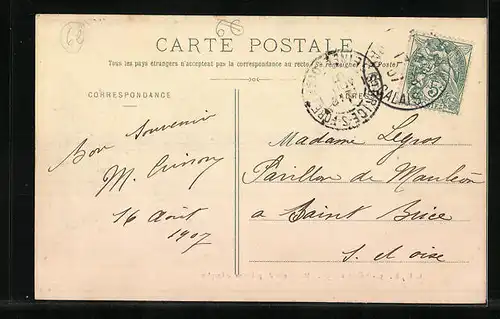 62
CARTE POSTALE
Tous les pays étrangers n'acceptent pas la correspondance au recto (Se renseigner à la Poste)
CORRESPONDANCE
Bon Souvenir
M.
16 Août
1907
Madame Legros
Pavillon de Mauléon
a Saint Brice
S. et oise
CALAIS